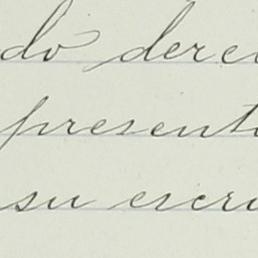 do derec
presente
su escri